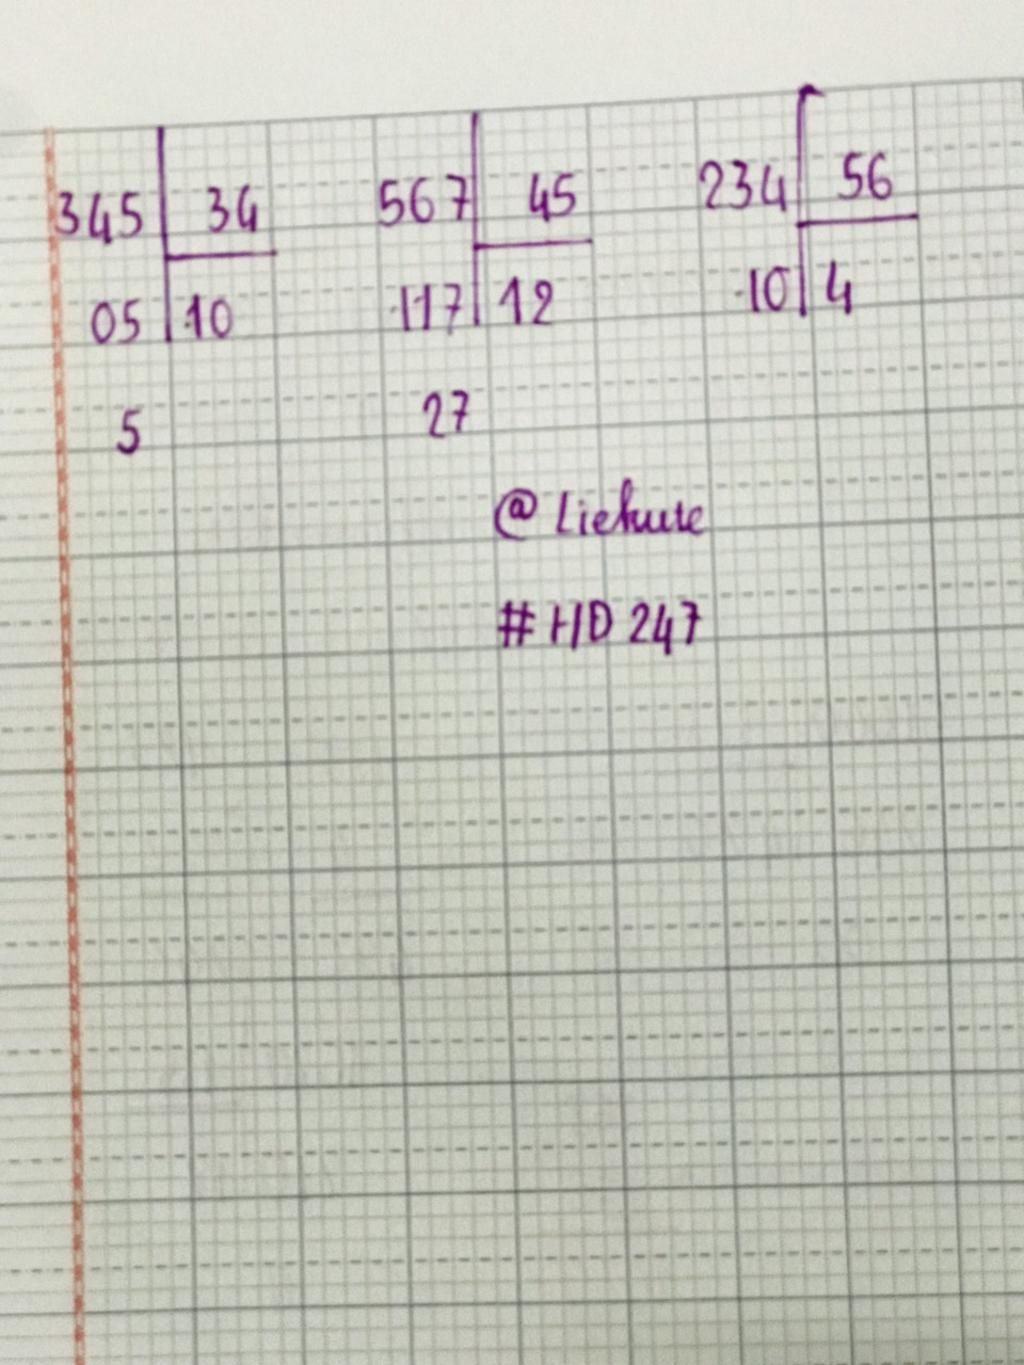 345 34 567 45 234 56
05 10 117 12 10 4
5 27
@ Liekute
#HD 247